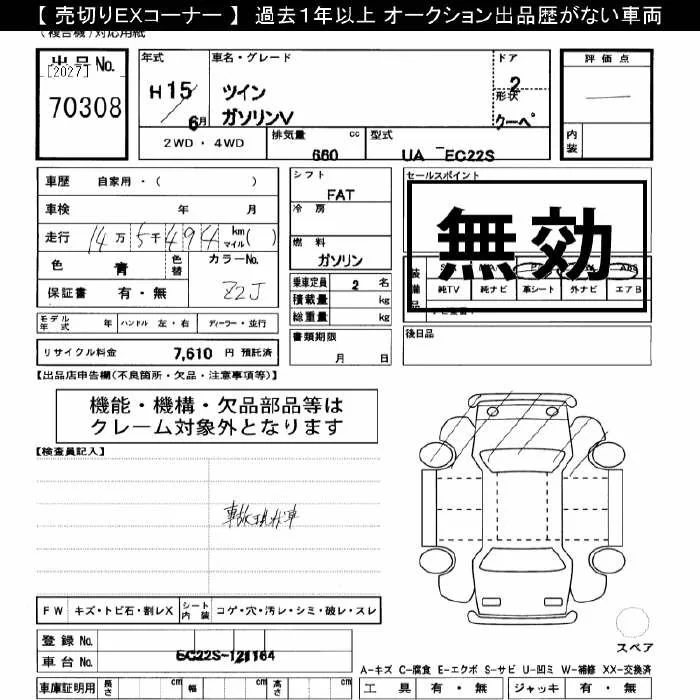 【 売切りEXコーナー 】 過去1年以上 オークション出品歴がない車両
(複合機)対応用紙
出品No.
[2027]
70308
年式
H 15
6月
車名・グレード
ツイン
ガソリンV
ドア
2
形状
クーペ
評価点
内装
2WD ・ 4WD
排気量 cc
660
型式
UA EC22S
車歴 自家用・( )
車検 年 月
走行 14万 5千 494 km マイル ( )
色 青 色替 カラーNo. Z2J
保証書 有・無
モデル年式 年 ハンドル 左・右 ディーラー・並行
リサイクル料金 7,610 円 預託済
シフト
FAT
冷房
燃料
ガソリン
乗車定員 2 名
積載量 kg
総重量 kg
書類期限
月 日
セールスポイント
無効
装備品
純TV 純ナビ 革シート 外ナビ エアB
後日品
【出品店申告欄(不良箇所・欠品・注意事項等)】
機能・機構・欠品部品等は
クレーム対象外となります
【検査員記入】
事故現状車
FW キズ・トビ石・割レX シート内装 コゲ・穴・汚レ・シミ・破レ・スレ
登録No.
車台No. EC22S-121164
車庫証明用 長さ cm 幅 cm 高さ cm
スペア
A-キズ C-腐食 E-エクボ S-サビ U-凹ミ W-補修 XX-交換済
工具 有・無 ジャッキ 有・無